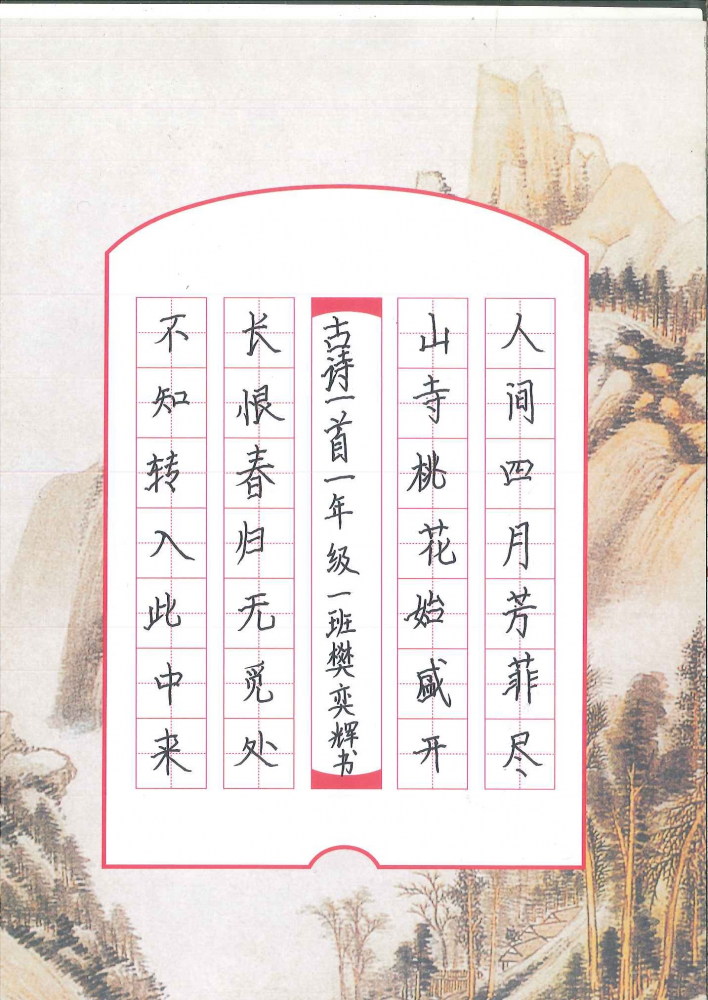 人间四月芳菲尽
山寺桃花始盛开
古诗一首一年级一班樊奕辉书
长恨春归无觅处
不知转入此中来